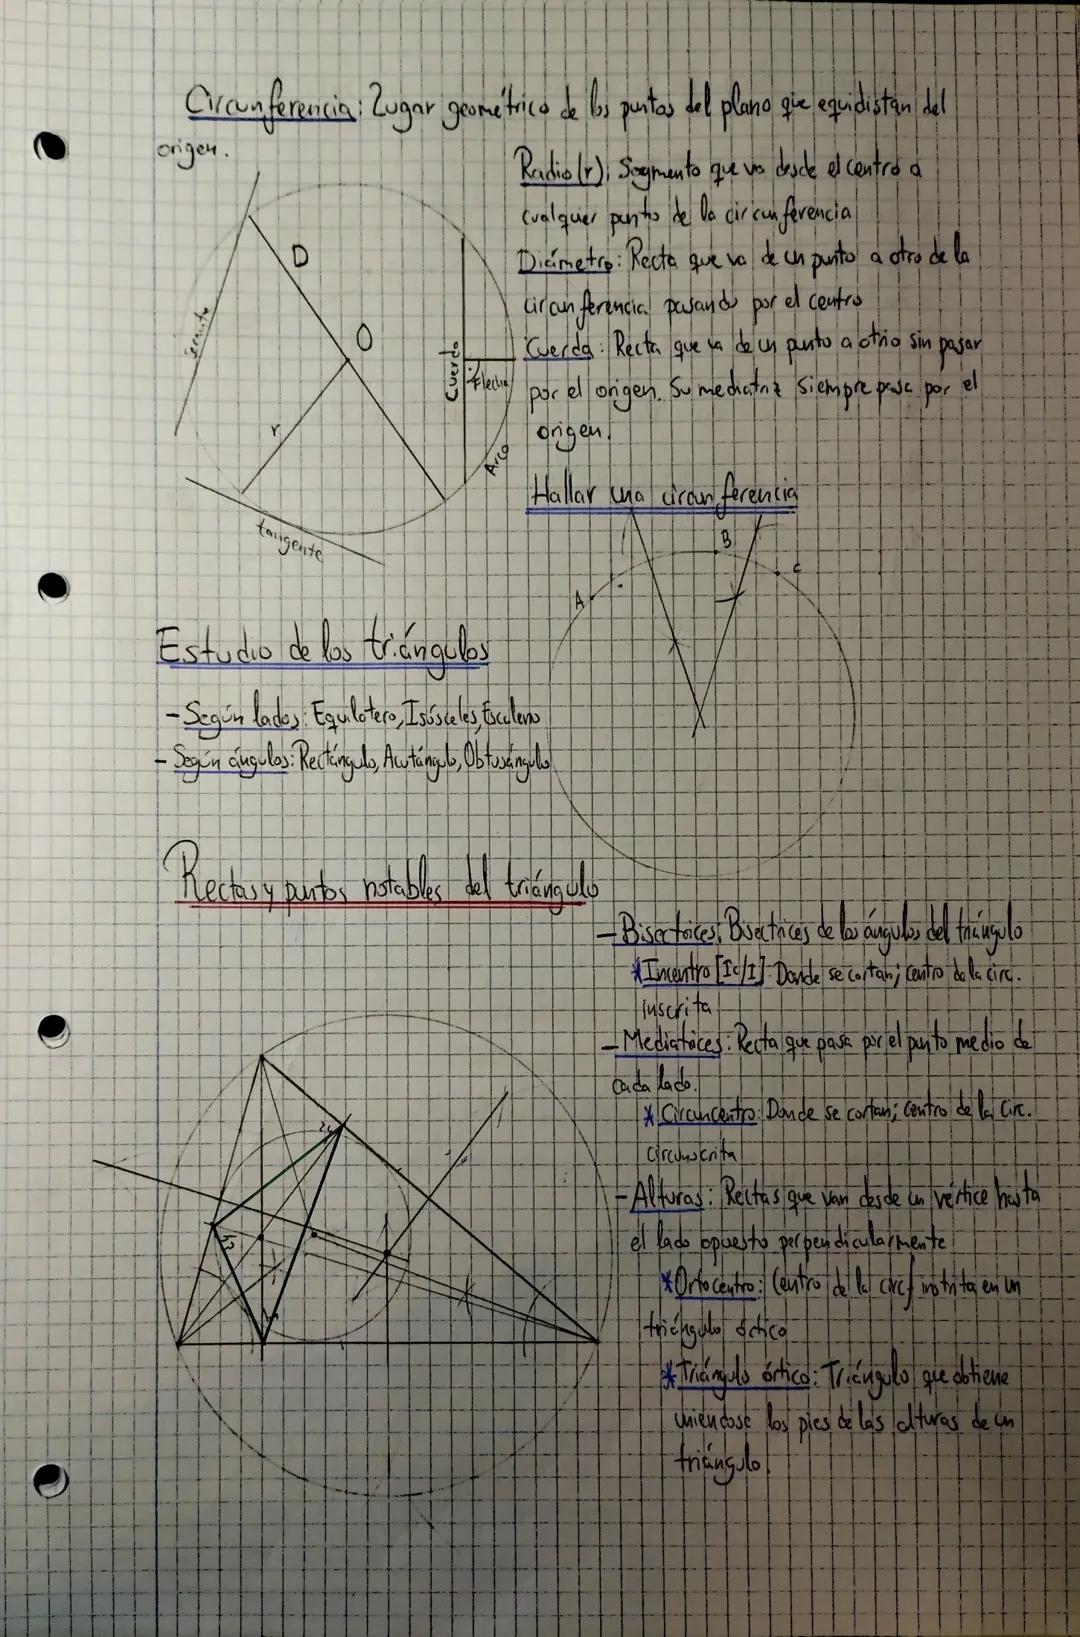 Circunferencia: Lugar geométrico de los puntos del plano que equidistan del
origen.
Radio (r): Segmento que va desde el centro a
cualquier punto de la circunferencia
Diámetro: Recta que va de un punto a otro de la
circunferencia pasando por el centro
Cuerda: Recta que va de un punto a otrio sin pasar
por el origen. Su mediatriz siempre pasa por el
origen.
D
O
r
Cuerda
Flecha
Arco
tangente
Hallar una circunferencia
A
B
C
Estudio de los triángulos
- Según lados: Equilatero, Isósceles, Escaleno
- Según ángulos: Rectángulo, Acutángulo, Obtusángulo
Rectas y puntos notables del triángulo
- Bisectrices: Bisectrices de los ángulos del triángulo
* Incentro [Ic/I]: Donde se cortan; centro de la circ.
inscrita
- Mediatrices: Recta que pasa por el punto medio de
cada lado.
* Circuncentro: Donde se cortan; centro de la circ.
circunscrita
- Alturas: Rectas que van desde un vértice hasta
el lado opuesto perpendicularmente
* Ortocentro: Centro de la circf in en un
triángulo óctico
* Triángulo órtico: Triángulo que obtiene
uniendose los pies de las alturas de un
triángulo.